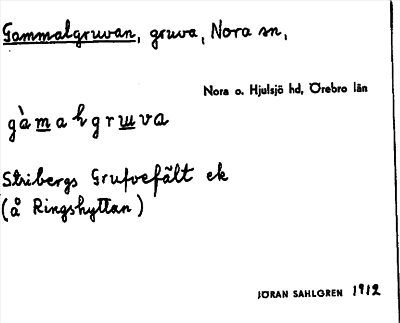 Gammalgruvan, gruva, Nora sn,
Nora o. Hjulsjö hd, Örebro län
gàmalgruva
Stribergs Grufvefält ek
(å Ringshyttan)
JÖRAN SAHLGREN 1912